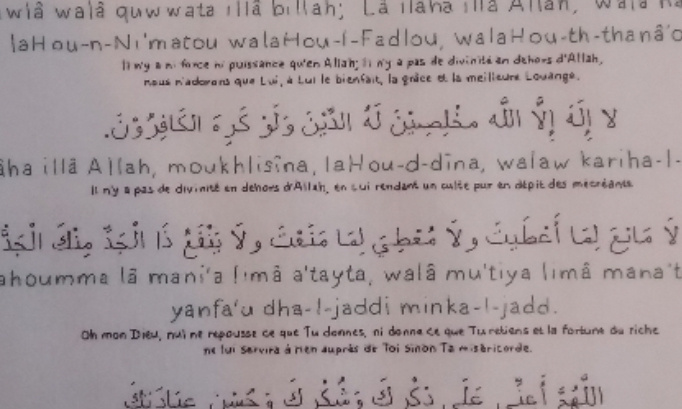 wlâ walâ quwwata illâ billah; Lâ ilâha illâ Allah, walâ na
laHou-n-Ni'matou walaHou-l-Fadlou, walaHou-th-thanâ'o
Il n'y a ni force ni puissance qu'en Allah; Il n'y a pas de divinité en dehors d'Allah,
nous n'adorons que Lui, à Lui le bienfait, la grâce et la meilleure Louange.
لا إِلَهَ إِلَّا اللَّه مخْلِصِيْنَ لَهُ الدِّيْنَ وَلَوْ كَرِهَ الكَافِرُوْنَ.
âha illâ Allah, moukhlisîna, laHou-d-dîna, walaw kariha-l-
Il n'y a pas de divinité en dehors d'Allah, en Lui rendant un culte pur en dépit des mécréants
لَا مَانِعَ لِمَا أَعْطَيتَ وَلَا مُعْطِيَ لِمَا مَنَعْتَ وَلَا يَنْفَعُ ذَا الْجَدِّ مِنْكَ الْجَدُّ
ahoumma lâ mani'a limâ a'tayta, walâ mu'tiya limâ mana't
yanfa'u dha-l-jaddi minka-l-jadd.
Oh mon Dieu, nul ne repousse ce que Tu donnes, ni donne ce que Tu retiens et la fortune du riche
ne lui servira à rien auprès de Toi sinon Ta miséricorde.
اللَّهُمَّ أَعِنِّي عَلَى ذِكْرِكَ وَشُكْرِكَ وَحُسْنِ عِبَادَتِكَ